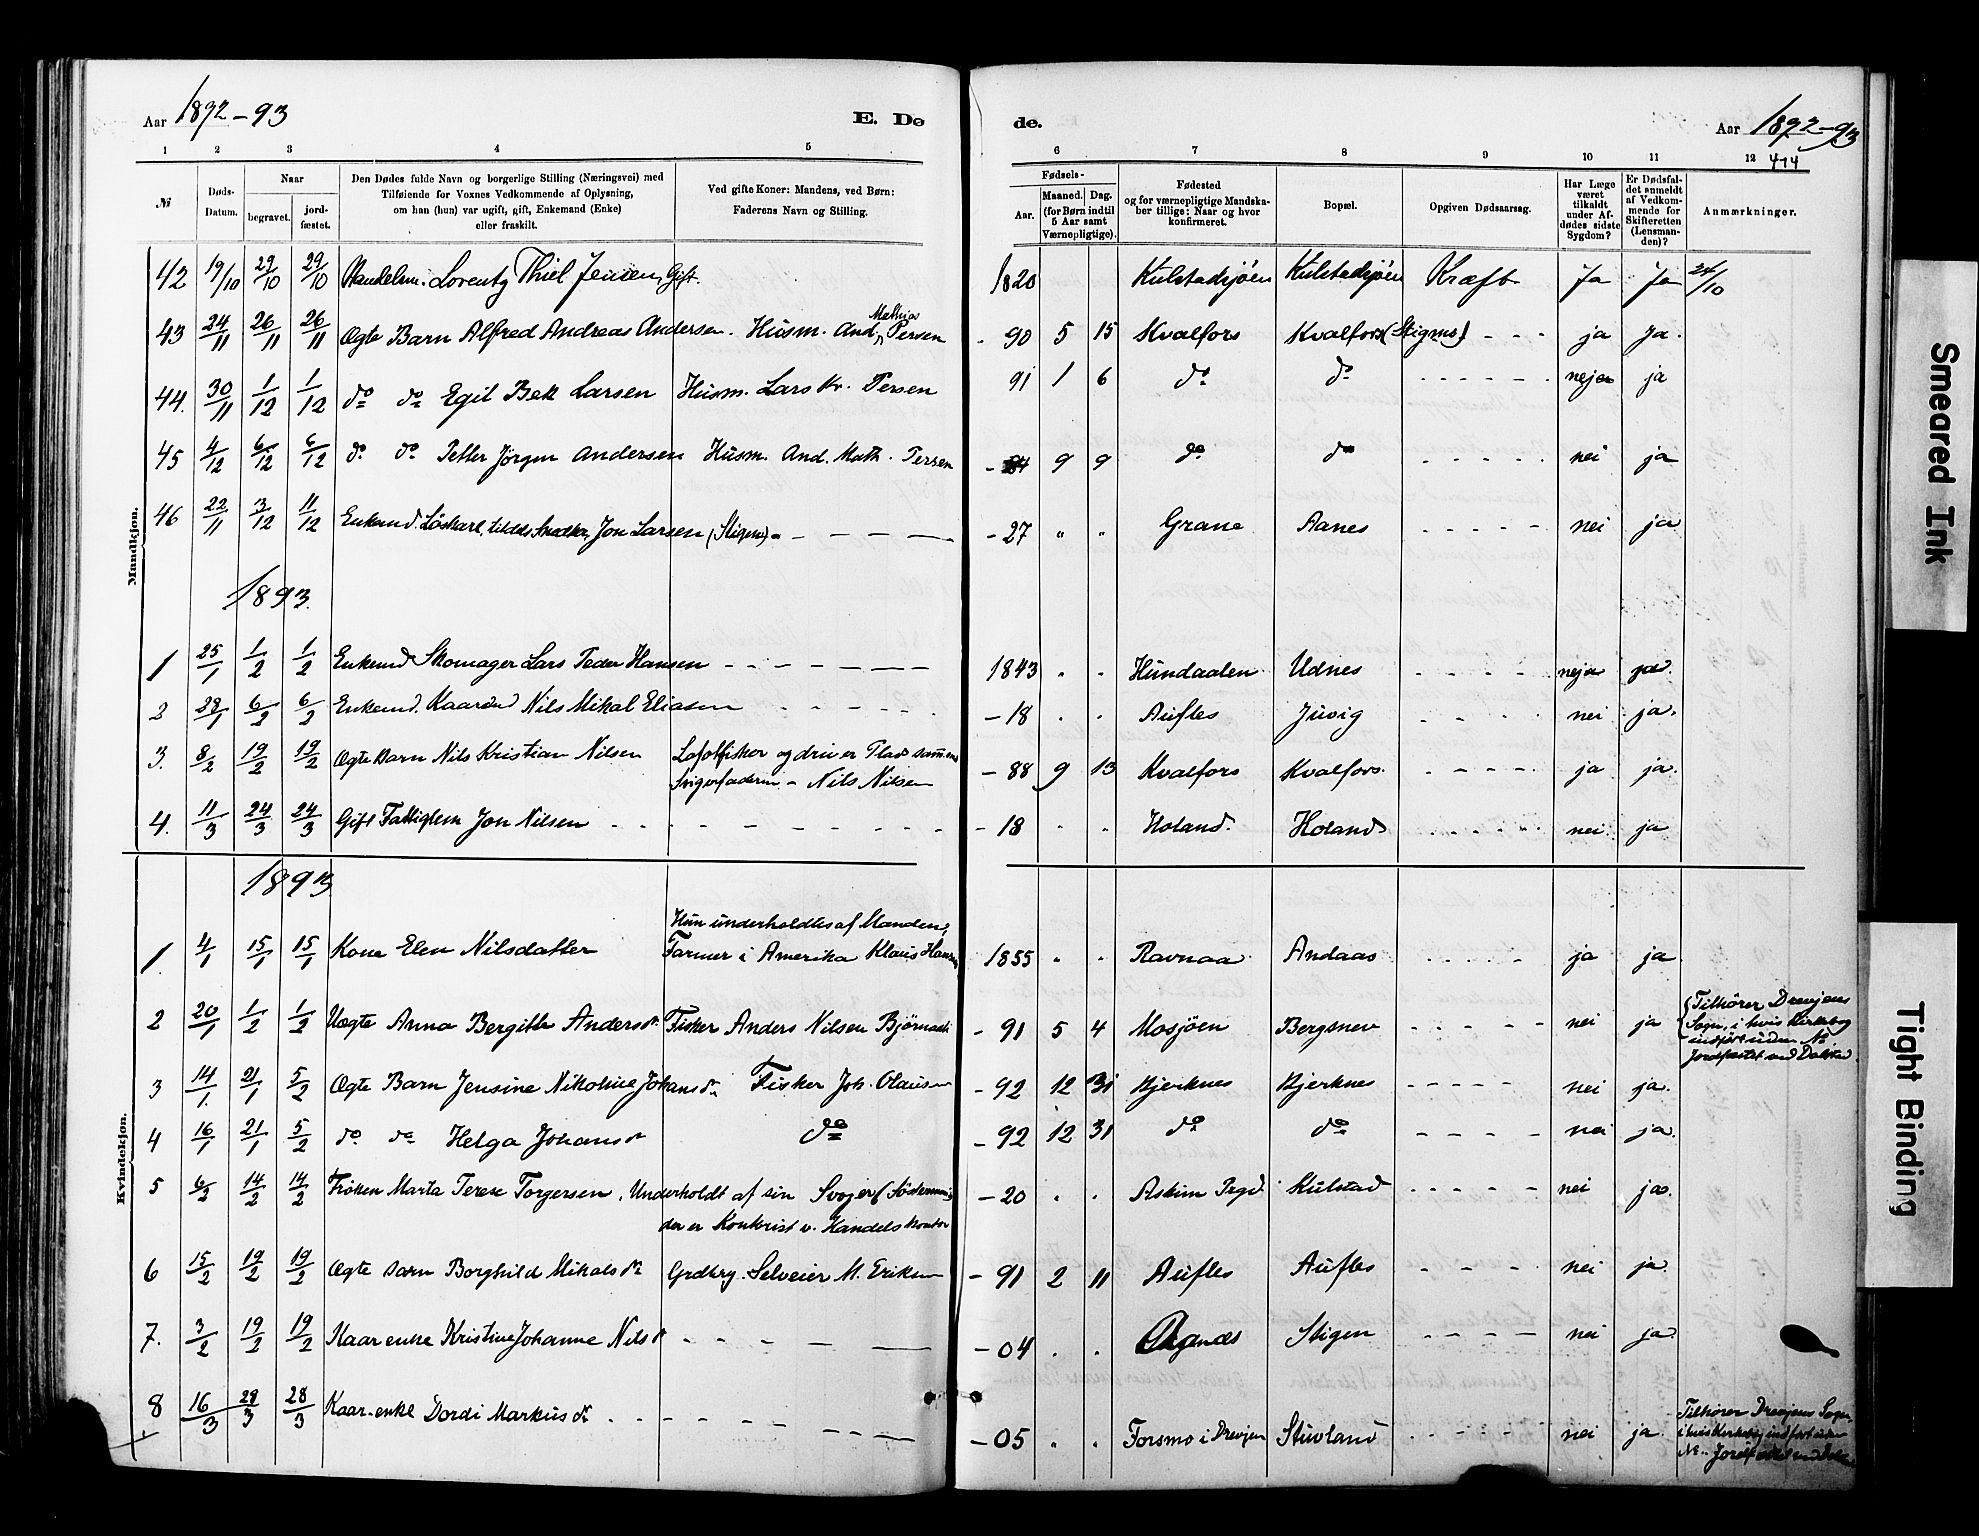 Aar 1892-93 E. Dø de. Aar 1892-93
414
1 2 3 4 5 6 7 8 9 10 11 12
№ Døds-Datum. Naar begravet. jord-fæstet. Den Dødes fulde Navn og borgerlige Stilling (Næringsvei) med Tilføiende for Voxnes Vedkommende af Oplysning, om han (hun) var ugift, gift, Enkemand (Enke) eller fraskilt. Ved gifte Koner: Mandens, ved Børn: Faderens Navn og Stilling. Fødsels- Aar. Maaned. Dag. (for Børn indtil 5 Aar samt Værnepligtige). Fødested og for værnepligtige Mandskaber tillige: Naar og hvor konfirmeret. Bopæl. Opgiven Dødsaarsag. Har Læge været tilkaldt under Afdødes sidste Sygdom? Er Dødsfaldet anmeldt af Vedkommende for Skifteretten (Lensmanden)? Anmærkninger.
Mandkjøn.
42 19/10 29/10 29/10 Handelsm. Lorentz Thiel Jensen, Gift. 1820 Kulstadsjøen Kulstadsjøen Kræft Ja Ja 24/10
43 24/11 26/11 26/11 Ægte Barn Alfred Andreas Andersen. Husm. And. Mathias Persen - 90 5 15 Kvalfors Kvalfors (Stigms) ja Ja.
44. 30/11 1/12 1/12 do do Egil Bek Larsen Husm. Lars Kr. Persen 91 1 6 do do nej ja
45 4/12 6/12 6/12 do do Petter Jörgen Andersen Husm. And. Math. Persen - 84 9 9 do do nei ja
46 22/11 3/12 11/12 Enkemd. Löskarl, tildels Snedker, Jon Larsen (Stigen) - 27 " " Grane Aanes nei ja
1893.
1 25/1 1/2 1/2 Enkemd Skomager Lars Peder Hansen 1843 Hundaalen Udnes nej ja.
2 28/1 6/2 6/2 Enkemd. Kaarmd Nils Mikal Eliasen - 18 Aufles Juvig nei ja.
3. 8/2 19/2 19/2 Ægte Barn Nils Kristian Nilsen Lofotfisker og driver Plads sammen
Svigerfaderen - Nils Nilsen - 88 9 13 Kvalfors Kvalfors. ja ja.
4. 11/3 24/3 24/3 Gift Fattiglem Jon Nilsen - 18 Holand. Holand nei ja
Kvindekjøn.
1893
Hun underholdtes af Manden,
1. 4/1 15/1 15/1 Kone Elen Nilsdatter Farmer i Amerika Klaus Hansen 1855 Ravnaa Andaas ja ja
2 20/1 1/2 1/2 Uægte Anna Bergitte Andersdr. Fisker Anders Nilsen - 91 5 4 Mosjøen Bergsnev nei ja Tilhører Drevjens
Sogn, i hvis Kirkebog
indført uden №
Jordfæstet
3 14/1. 21/1 5/2 Ægte Barn Jensine Nikoline Johansdr Fisker Joh. Olausen - 92 12 31 Kjerknes Kjerknes nei ja.
4 16/1 21/1 5/2 do do Helga Johansdr do - 92 12 31 do do nei ja.
5 6/2 14/2 14/2 Frøken Marta Terese Torgersen. Underholdt af sin Svoger - 20 Askim Prgd. Kulstad nei ja.
der er Kontorist v. Handelskontor
6 15/2 19/2 19/2 Ægte Barn Borghild Mikalsdr Grdbrg. Selveier M. Eriksen - 91 2 11 Aufles Aufles nei ja.
7. 3/2 19/2 19/2 Kaarenke Kristine Johanne Nilsdr - 04 Stigen nei ja.
8 16/3 28/3 28/3 Kaar-enke Dordi Markusdr. - 05 Forsmo i Drevjen Stuvland nei ja. Tilhører Drevjens Sogn,
i hvis Kirkebog indført uden
№ Jordfæstet
Smeared Ink
Tight Binding